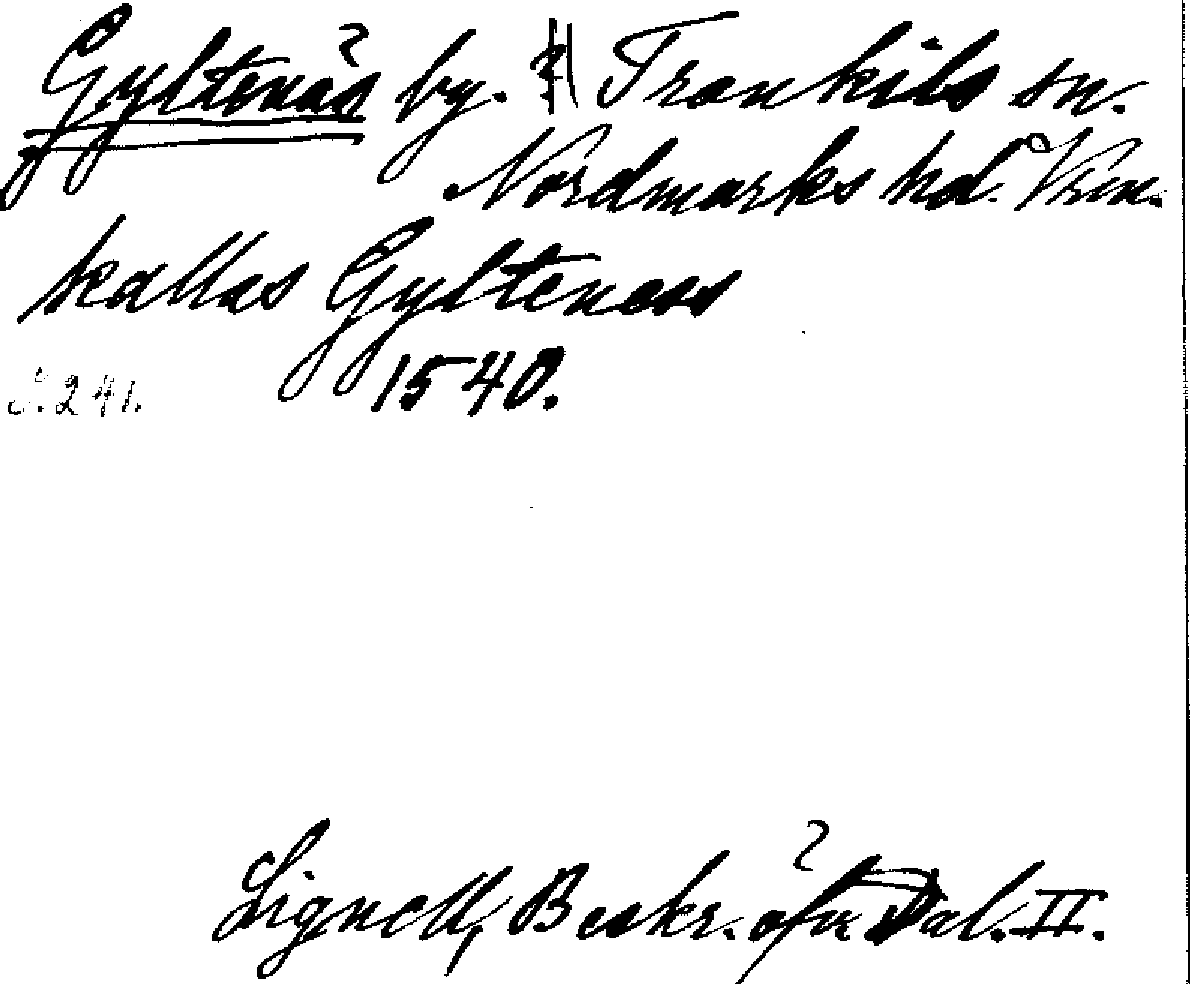 Gyltenäs by. Trankils sn.
Nordmarks hd. Vrm.
kallas Gylteness
1540.
S. 241.
Lignell, Beskr. öfv. Dal. II.